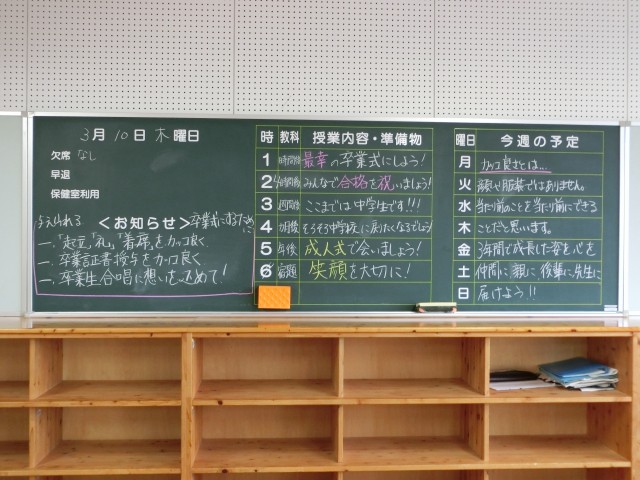 3月10日木曜日
欠席 なし
早退
保健室利用
<お知らせ> 卒業式にするために
一、「起立」「礼」「着席」をカッコ良く
一、卒業証書授与をカッコ良く
一、卒業生合唱に想いを込めて!
時 教科 授業内容・準備物
1 時間後 最幸の卒業式にしよう!
2 時間後 みんなで合格を祝いましょう!
3 週間後 ここまでは中学生です!!!
4 か月後 そろそろ中学校に戻りたくなるでしょう
5 年後 成人式で会いましょう!
6 宿題 笑顔を大切に!
曜日 今週の予定
月 カッコ良さとは…
火 顔や服装ではありません。
水 当たり前のことを当たり前にできる
木 ことだと思います。
金 3年間で成長した姿を心を
土 仲間に 親に 後輩に 先生に
日 届けよう!!